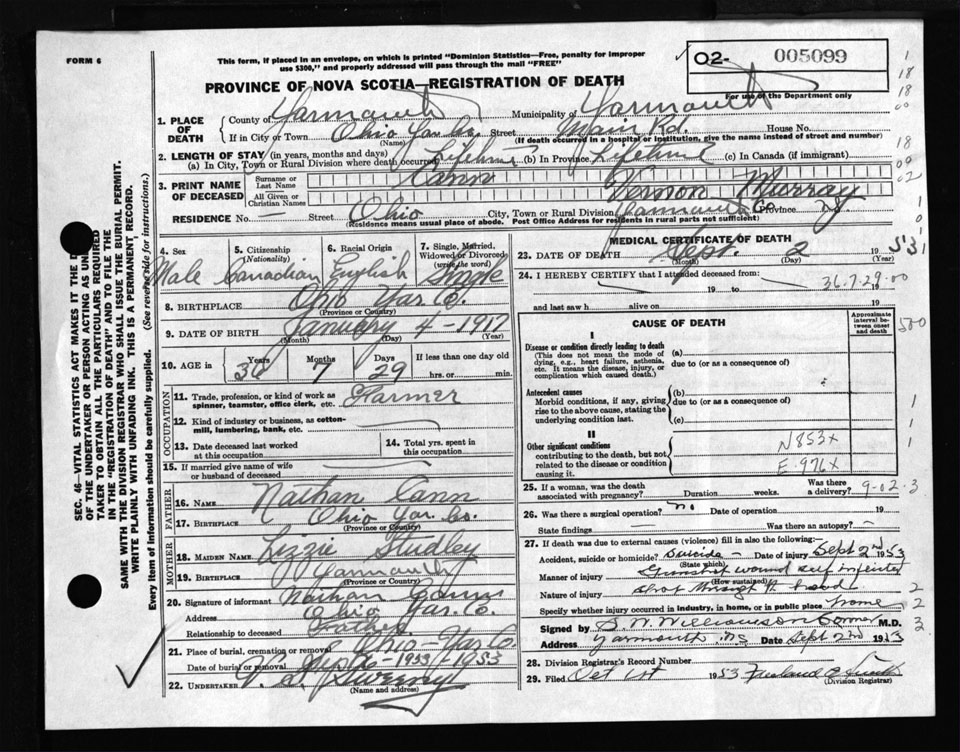 FORM 6
This form, if placed in an envelope, on which is printed "Dominion Statistics—Free, penalty for improper
use $300," and properly addressed will pass through the mail "FREE"
02- 005099
For use of the Department only
PROVINCE OF NOVA SCOTIA—REGISTRATION OF DEATH
1. PLACE OF DEATH
County of Yarmouth Municipality of Yarmouth
If in City or Town Ohio Yar Co. Street Main Rd. House No.
(Name) (If death occurred in a hospital or institution, give the name instead of street and number)
2. LENGTH OF STAY (in years, months and days)
(a) In City, Town or Rural Division where death occurred Lifetime (b) In Province Lifetime (c) In Canada (if immigrant)
3. PRINT NAME OF DECEASED
Surname or Last Name Cann
All Given or Christian Names Vernon Murray
RESIDENCE No. — Street Ohio City, Town or Rural Division Yarmouth Co Province NS
(Residence means usual place of abode. Post Office Address for residents in rural parts not sufficient)
4. Sex
Male
5. Citizenship
(Nationality)
Canadian
6. Racial Origin
English
7. Single, Married,
Widowed or Divorced
(write the word)
Single
8. BIRTHPLACE Ohio Yar. Co.
(Province or Country)
9. DATE OF BIRTH January 4 - 1917
(Month) (Day) (Year)
10. AGE in
Years 36
Months 7
Days 29
If less than one day old
hrs. or min.
OCCUPATION
11. Trade, profession, or kind of work as
spinner, teamster, office clerk, etc. Farmer
12. Kind of industry or business, as cotton-
mill, lumbering, bank, etc.
13. Date deceased last worked
at this occupation
14. Total yrs. spent in
this occupation
15. If married give name of wife
or husband of deceased
FATHER
16. NAME Nathan Cann
17. BIRTHPLACE Ohio Yar. Co.
(Province or Country)
MOTHER
18. MAIDEN NAME Lizzie Studley
19. BIRTHPLACE Yarmouth
(Province or Country)
20. Signature of informant Nathan Cann
Address Ohio Yar. Co.
Relationship to deceased Father
21. Place of burial, cremation or removal Ohio Yar Co.
Date of burial or removal 1953
22. UNDERTAKER V. S. Sweeny
(Name and address)
MEDICAL CERTIFICATE OF DEATH
23. DATE OF DEATH Sept. 2 1953
(Month) (Day) (Year)
24. I HEREBY CERTIFY that I attended deceased from:
19 to 19
36.7-29.00
and last saw h alive on 19
CAUSE OF DEATH
Approximate interval between onset and death
I
Disease or condition directly leading to death
(This does not mean the mode of
dying, e.g., heart failure, asthenia,
etc. It means the disease, injury, or
complication which caused death.)
(a)
due to (or as a consequence of)
Antecedent causes
Morbid conditions, if any, giving
rise to the above cause, stating the
underlying condition last.
(b)
due to (or as a consequence of)
(c)
II
Other significant conditions
contributing to the death, but not
related to the disease or condition
causing it.
N853x
E-976x
25. If a woman, was the death
associated with pregnancy? Duration weeks. Was there
a delivery?
9-02-3
26. Was there a surgical operation? no Date of operation 19
State findings — Was there an autopsy? —
27. If death was due to external causes (violence) fill in also the following:
Accident, suicide or homicide? Suicide — Date of injury Sept 2nd 1953
(State which)
Manner of injury Gunshot wound self inflicted
(How sustained)
Nature of injury Shot through head
Specify whether injury occurred in industry, in home, or in public place home
Signed by B. W. Williamson Coroner M.D.
Address Yarmouth NS Date Sept 2nd 1953
28. Division Registrar's Record Number
29. Filed Oct 1st 1953
(Division Registrar)
SEC. 46—VITAL STATISTICS ACT MAKES IT THE
OF THE UNDERTAKER OR PERSON ACTING AS
TAKER TO OBTAIN ALL THE PARTICULARS REQUIRED
IN THE "REGISTRATION OF DEATH" AND TO FILE THE
SAME WITH THE DIVISION REGISTRAR WHO SHALL ISSUE THE BURIAL PERMIT.
WRITE PLAINLY WITH UNFADING INK. THIS IS A PERMANENT RECORD.
Every item of information should be carefully supplied. (See reverse side for instructions.)